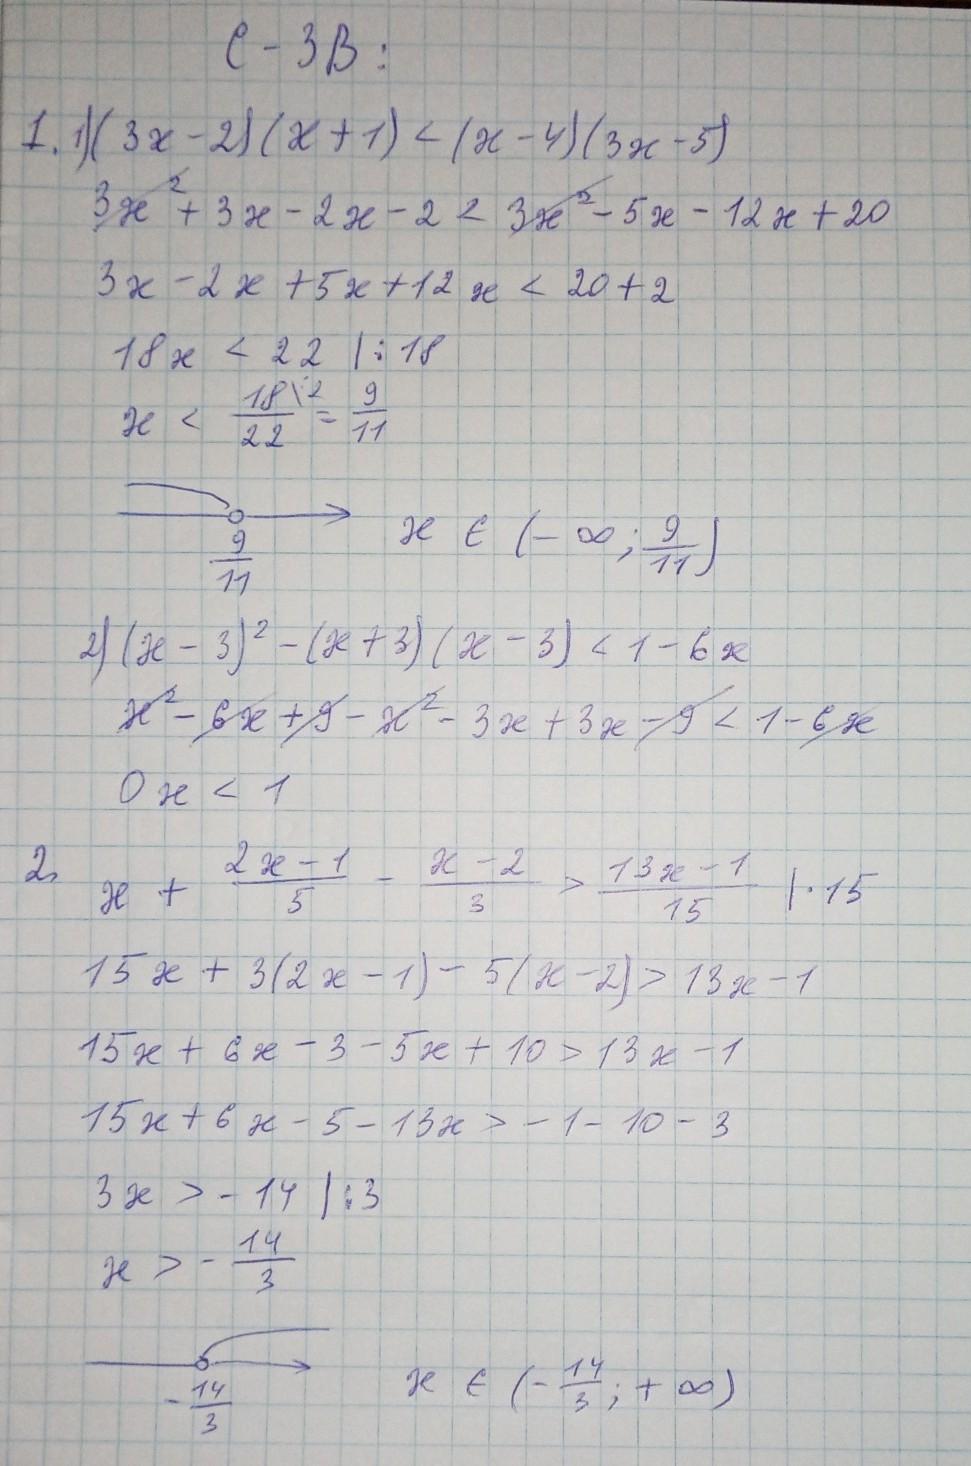 С-3В:
1. 1) (3x-2)(x+1) < (x-4)(3x-5)
3x² + 3x - 2x - 2 < 3x² - 5x - 12x + 20
3x - 2x + 5x + 12x < 20 + 2
18x < 22 |:18
x < 18\:2/22 = 9/11
9/11 x ∈ (-∞; 9/11)
2) (x-3)² - (x+3)(x-3) < 1 - 6x
x² - 6x + 9 - x² - 3x + 3x - 9 < 1 - 6x
0x < 1
2. x + (2x-1)/5 - (x-2)/3 > (13x-1)/15 |·15
15x + 3(2x-1) - 5(x-2) > 13x - 1
15x + 6x - 3 - 5x + 10 > 13x - 1
15x + 6x - 5 - 13x > -1 - 10 - 3
3x > -14 |:3
x > -14/3
-14/3 x ∈ (-14/3; +∞)